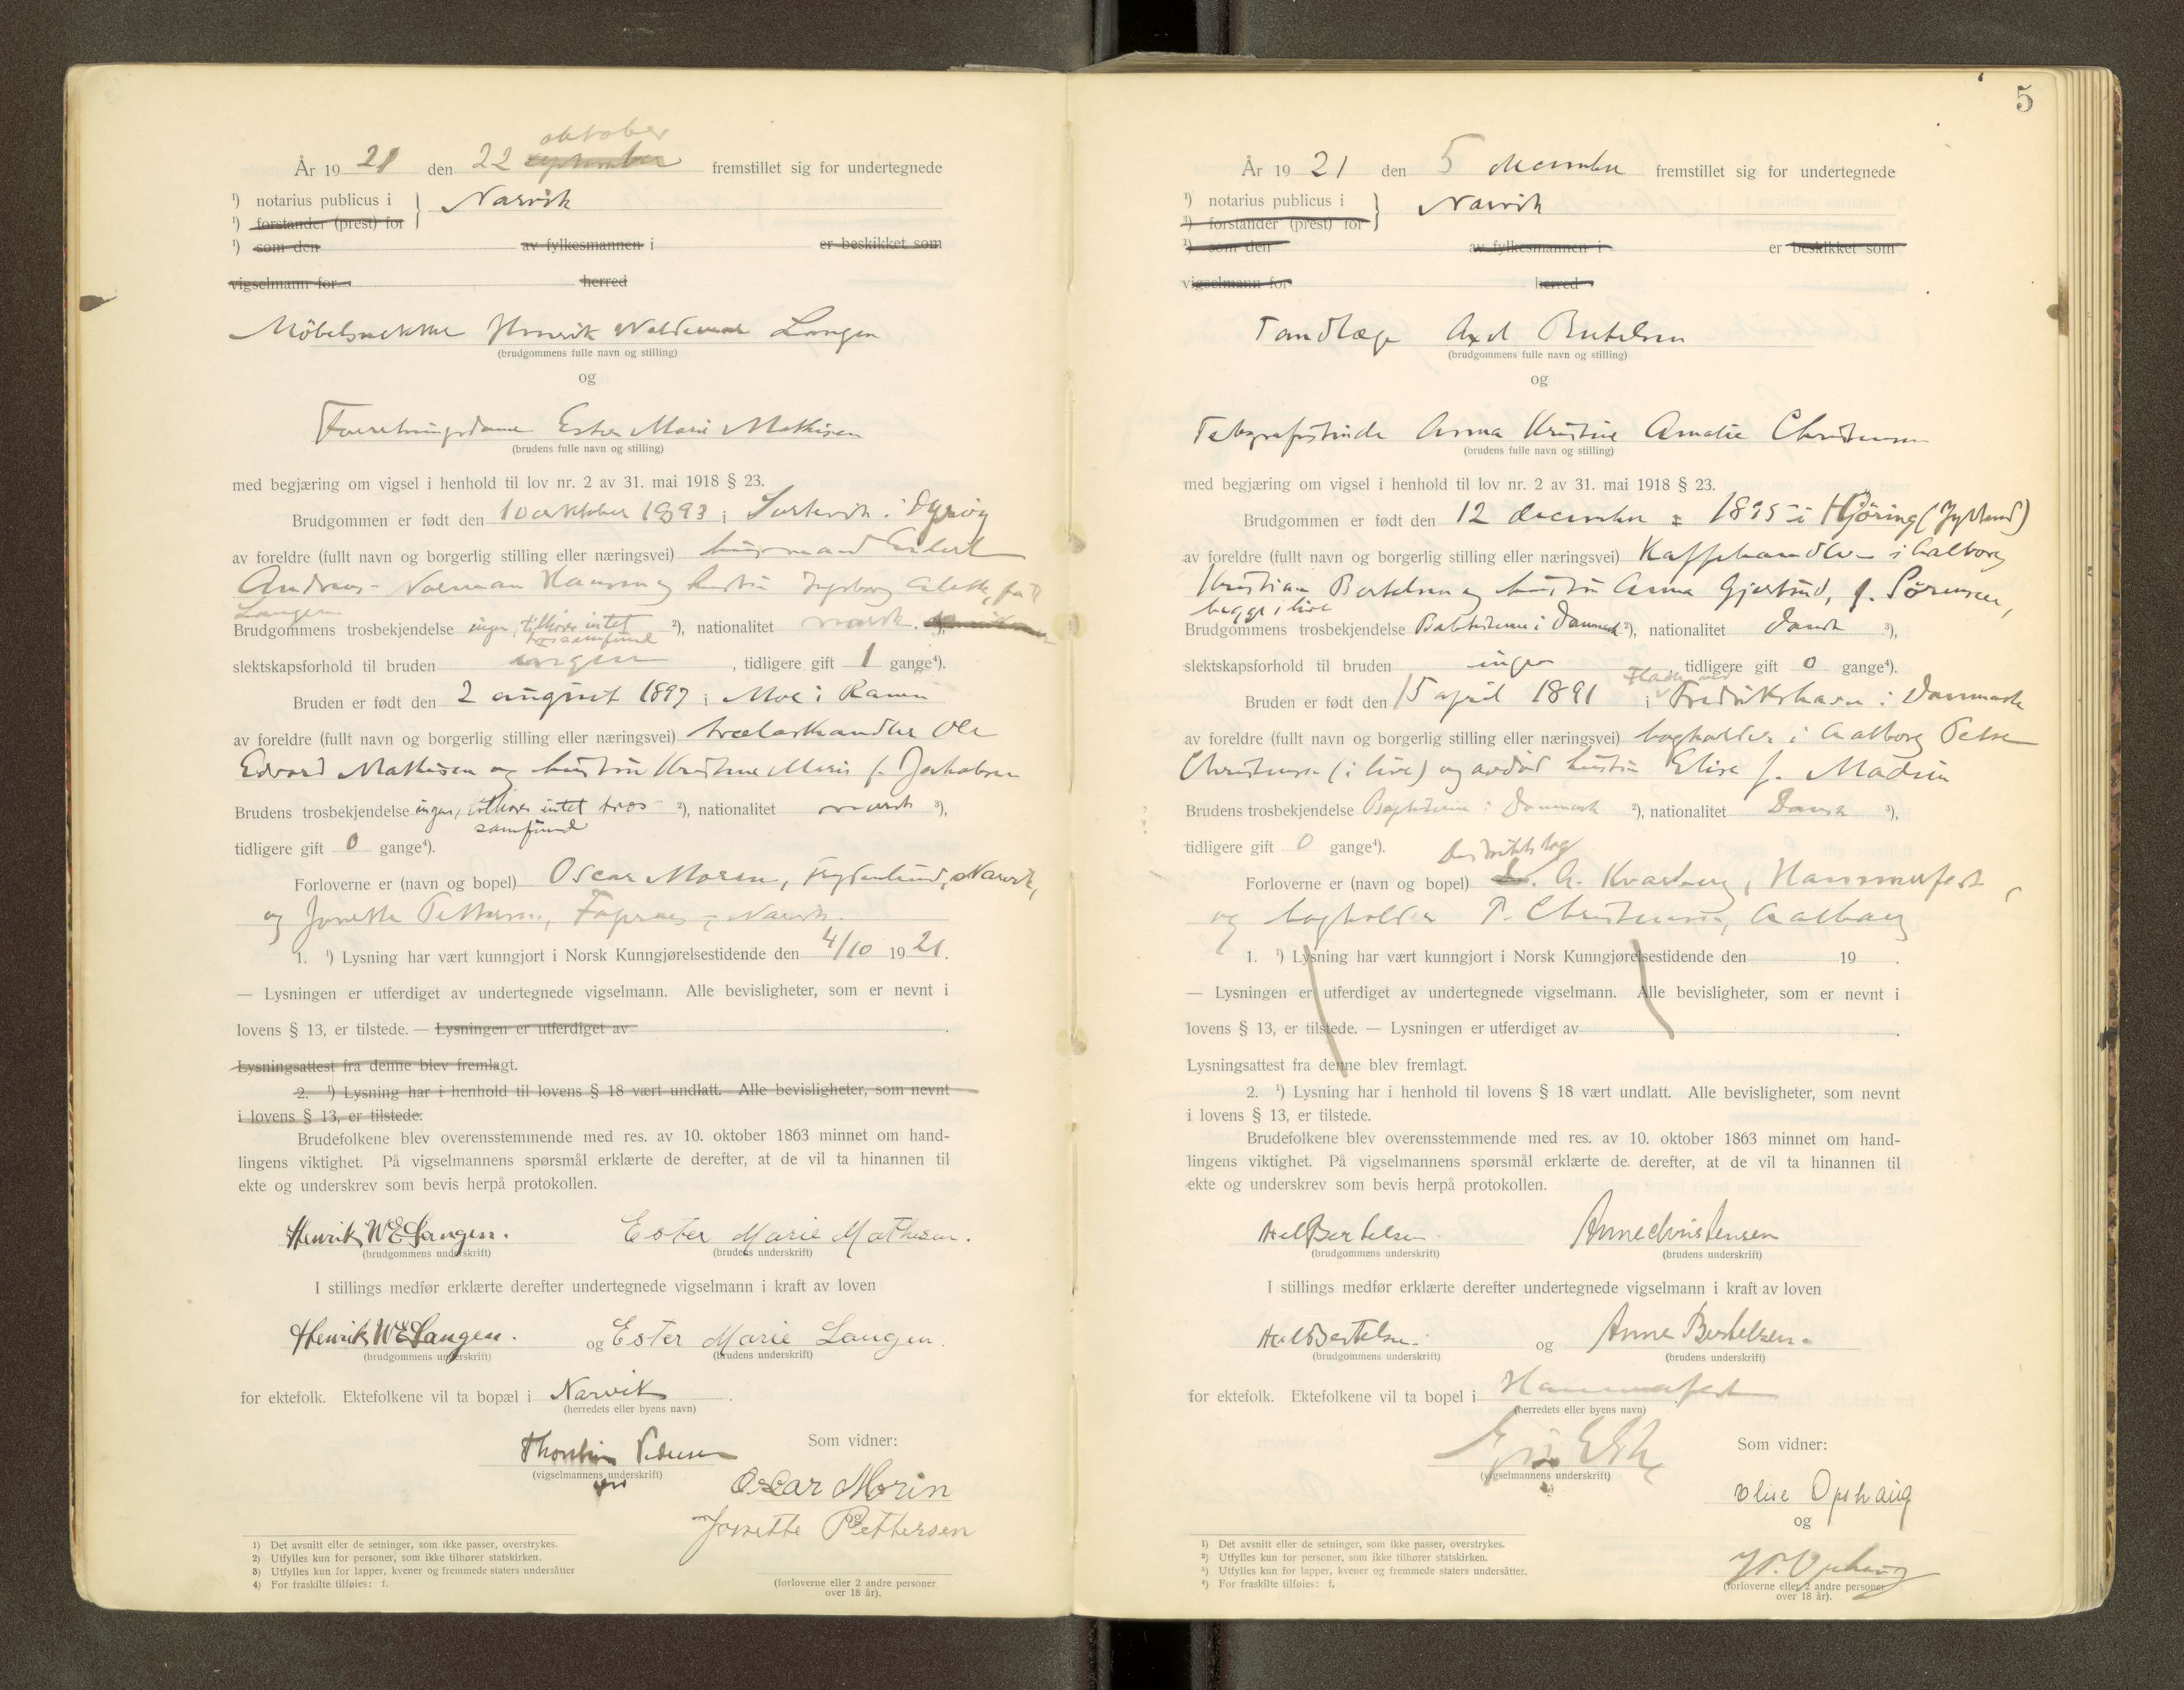 oktober
År 19 21 den 22 september fremstillet sig for undertegnede
¹) notarius publicus i } Narvik
¹) forstander (prest) for
¹) som den av fylkesmannen i er beskikket som
vigselmann for herred
Møbelsnekker Henrik Waldemar Langen
(brudgommens fulle navn og stilling)
og
Forretningsdame Ester Marie Mathisen
(brudens fulle navn og stilling)
med begjæring om vigsel i henhold til lov nr. 2 av 31. mai 1918 § 23.
Brudgommen er født den 10 oktober 1893 i Dyrøy
av foreldre (fullt navn og borgerlig stilling eller næringsvei)
Andreas Norman Hansen og hustru Ingeborg Aletta, født
Langen
Brudgommens trosbekjendelse ingen, tilhører intet trossamfund ²), nationalitet norsk ³),
slektskapsforhold til bruden ingen, tidligere gift 1 gange⁴).
Bruden er født den 2 august 1897 i Moe i Ranen
av foreldre (fullt navn og borgerlig stilling eller næringsvei) trælasthandler Ole
Edvard Mathisen og hustru Kristine Marie f. Jakobsen
Brudens trosbekjendelse ingen, tilhører intet tros- ²), nationalitet norsk ³),
samfund
tidligere gift 0 gange⁴).
Forloverne er (navn og bopel) Oscar Moren, Frydenlund, Narvik,
og Jonette Pettersen, Fagernes, Narvik.
1. ¹) Lysning har vært kunngjort i Norsk Kunngjørelsestidende den 4/10 1921.
— Lysningen er utferdiget av undertegnede vigselmann. Alle bevisligheter, som er nevnt i
lovens § 13, er tilstede. — Lysningen er utferdiget av .
Lysningsattest fra denne blev fremlagt.
2. ¹) Lysning har i henhold til lovens § 18 vært undlatt. Alle bevisligheter, som nevnt
i lovens § 13, er tilstede.
Brudefolkene blev overensstemmende med res. av 10. oktober 1863 minnet om hand-
lingens viktighet. På vigselmannens spørsmål erklærte de derefter, at de vil ta hinannen til
ekte og underskrev som bevis herpå protokollen.
Henrik W E Langen. Ester Marie Mathisen.
(brudgommens underskrift) (brudens underskrift)
I stillings medfør erklærte derefter undertegnede vigselmann i kraft av loven
Henrik W E Langen. og Ester Marie Langen.
(brudgommens underskrift) (brudens underskrift)
for ektefolk. Ektefolkene vil ta bopæl i Narvik.
(herredets eller byens navn)
Thorstein Pedersen
(vigselmannens underskrift)
Som vidner:
Oscar Morin
og
Jonette Pettersen
(forloverne eller 2 andre personer
over 18 år).
1) Det avsnitt eller de setninger, som ikke passer, overstrykes.
2) Utfylles kun for personer, som ikke tilhører statskirken.
3) Utfylles kun for lapper, kvener og fremmede staters undersåtter
4) For fraskilte tilføies: f.
5
År 19 21 den 5 december fremstillet sig for undertegnede
¹) notarius publicus i } Narvik
¹) forstander (prest) for
¹) som den av fylkesmannen i er beskikket som
vigselmann for herred
Tandlæge Axel Bertelsen
(brudgommens fulle navn og stilling)
og
Telegrafistinde Anna Kristine Amalie Christensen
(brudens fulle navn og stilling)
med begjæring om vigsel i henhold til lov nr. 2 av 31. mai 1918 § 23.
Brudgommen er født den 12 december 1895 i Hjøring (Jylland)
av foreldre (fullt navn og borgerlig stilling eller næringsvei) Kaffehandler i Aalborg
Kristian Bertelsen og hustru Anna Gjertrud, f. Sørensen,
begge i live
Brudgommens trosbekjendelse i Danmark ²), nationalitet Dansk ³),
slektskapsforhold til bruden ingen, tidligere gift 0 gange⁴).
Bruden er født den 15 april 1891 i Fredrikshavn i Danmark
av foreldre (fullt navn og borgerlig stilling eller næringsvei) bogholder i Aalborg Peter
Christensen (i live) og avdød hustru Elise f. Madsen
Brudens trosbekjendelse i Danmark ²), nationalitet Dansk ³),
tidligere gift 0 gange⁴).
Forloverne er (navn og bopel) A. Kvarberg, Hammerfest
og bogholder P. Christensen, Aalborg
1. ¹) Lysning har vært kunngjort i Norsk Kunngjørelsestidende den 19 .
— Lysningen er utferdiget av undertegnede vigselmann. Alle bevisligheter, som er nevnt i
lovens § 13, er tilstede. — Lysningen er utferdiget av .
Lysningsattest fra denne blev fremlagt.
2. ¹) Lysning har i henhold til lovens § 18 vært undlatt. Alle bevisligheter, som nevnt
i lovens § 13, er tilstede.
Brudefolkene blev overensstemmende med res. av 10. oktober 1863 minnet om hand-
lingens viktighet. På vigselmannens spørsmål erklærte de derefter, at de vil ta hinannen til
ekte og underskrev som bevis herpå protokollen.
Axel Bertelsen Anne Christensen
(brudgommens underskrift) (brudens underskrift)
I stillings medfør erklærte derefter undertegnede vigselmann i kraft av loven
Axel Bertelsen. og Anne Bertelsen.
(brudgommens underskrift) (brudens underskrift)
for ektefolk. Ektefolkene vil ta bopel i Hammerfest.
(herredets eller byens navn)
(vigselmannens underskrift)
Som vidner:
Olise Opshaug
og
(forloverne eller 2 andre personer
over 18 år).
1) Det avsnitt eller de setninger, som ikke passer, overstrykes.
2) Utfylles kun for personer, som ikke tilhører statskirken.
3) Utfylles kun for lapper, kvener og fremmede staters undersåtter.
4) For fraskilte tilføies: f.